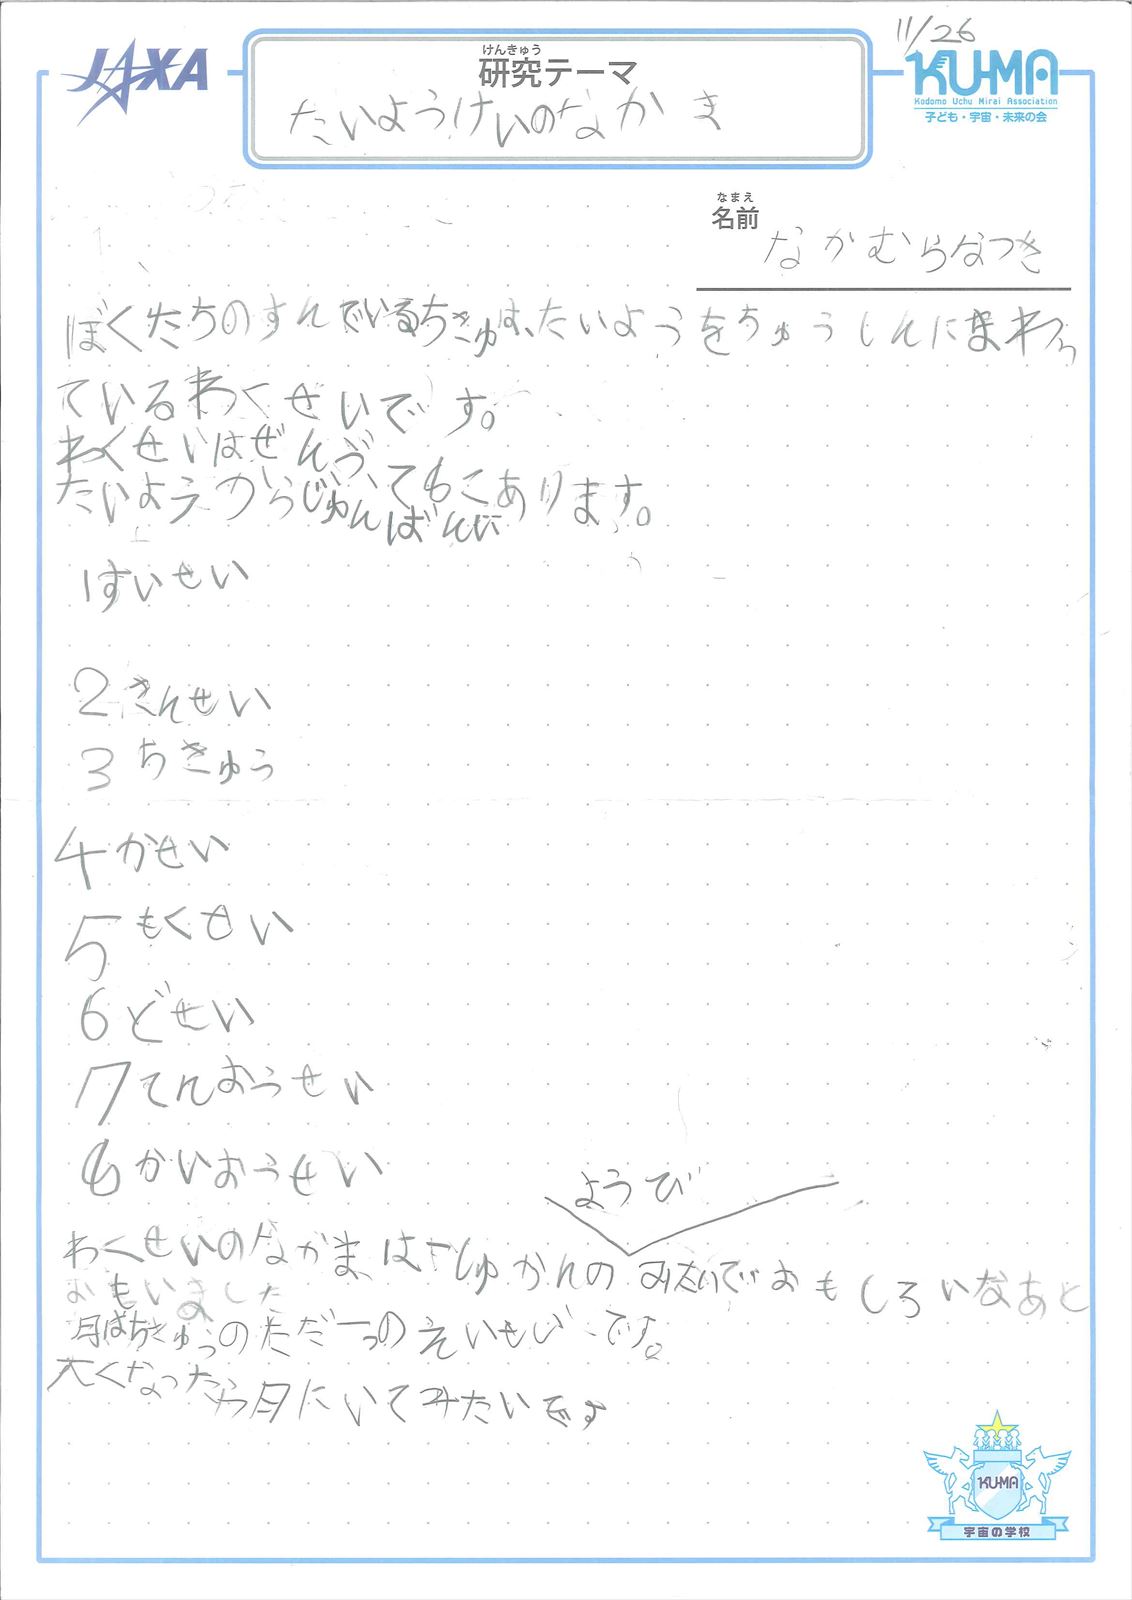 11/26
JAXA
けんきゅう
研究テーマ
KU-MA
Kodomo Uchu Mirai Association
子ども・宇宙・未来の会
たいようけいのなかま
なまえ
名前
なかむらなつき
ぼくたちのすんでいるちきゅは、たいようをちゅうしんにまわっ
ているわくせいです。
わくせいはぜんぶ
たいようの あります。
じゅんばんに
1すいせい
2きんせい
3ちきゅう
4かせい
5もくせい
6どせい
7てんおうせい
8かいおうせい
ようび
わくせいのなかま、は しゅかんの みたいでおもしろいなあと
おもいました
月はちきゅうのただ一つのえいせいです。
大くなったら月にいてみたいです
KU-MA
宇宙の学校